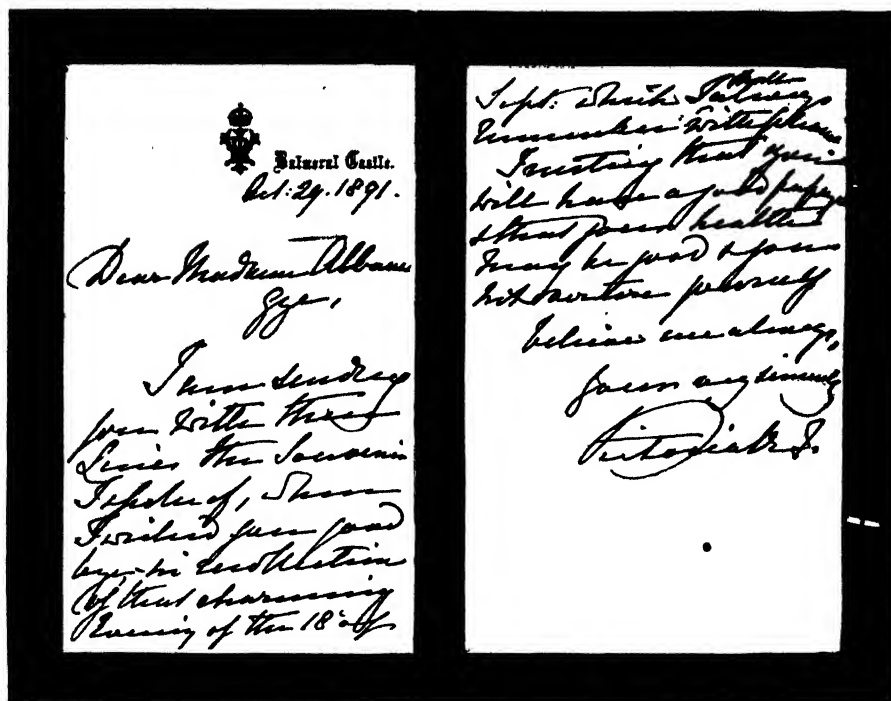 Balmoral Castle.
Oct: 29. 1891.
Dear Madame Albani
Gye,
I am sending
you with these
Lines the Souvenir
I spoke of, when
I wished you good
bye – in recollection
of that charming
Evening of the 18th of
Sept: which I shall always
remember with pleasure
Trusting that you
will have a good passage
& that your health
may be good & you
not overtire yourself
believe me always,
yours very sincerely
Victoria R. I.